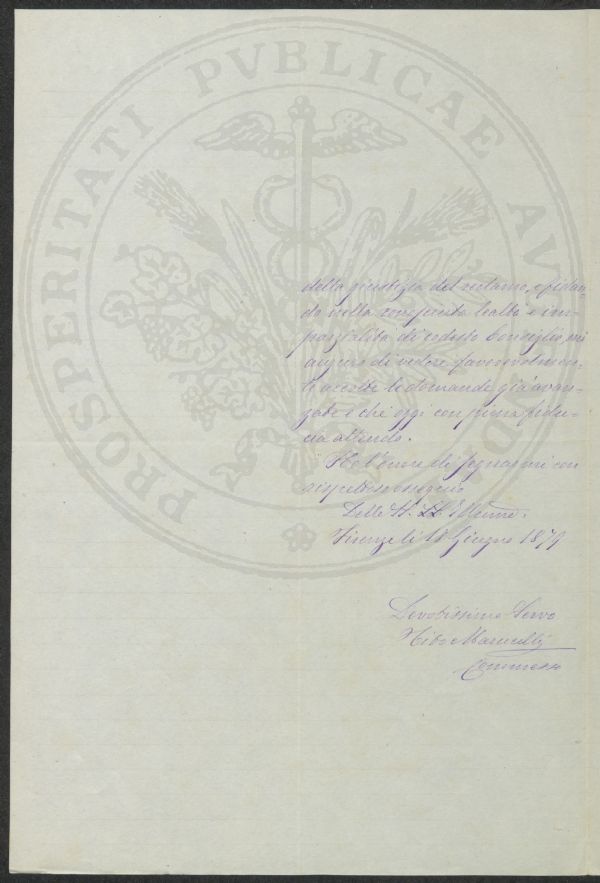 PROSPERITATI PVBLICAE AV
della giustizia del reclamo, e fidan-
do nella conosciuta lealtà e im-
parzialità di codesto Consiglio, mi
auguro di vedere favorevolmen-
te accolte le domande già avan-
zate e che oggi con piena fidu-
cia attendo.
Ho l'onore di segnarmi con
rispettoso ossequio
Delle SS. LL. Illme.
Firenze li 18 Giugno 1879
Devotissimo Servo
Marucelli
Commesso